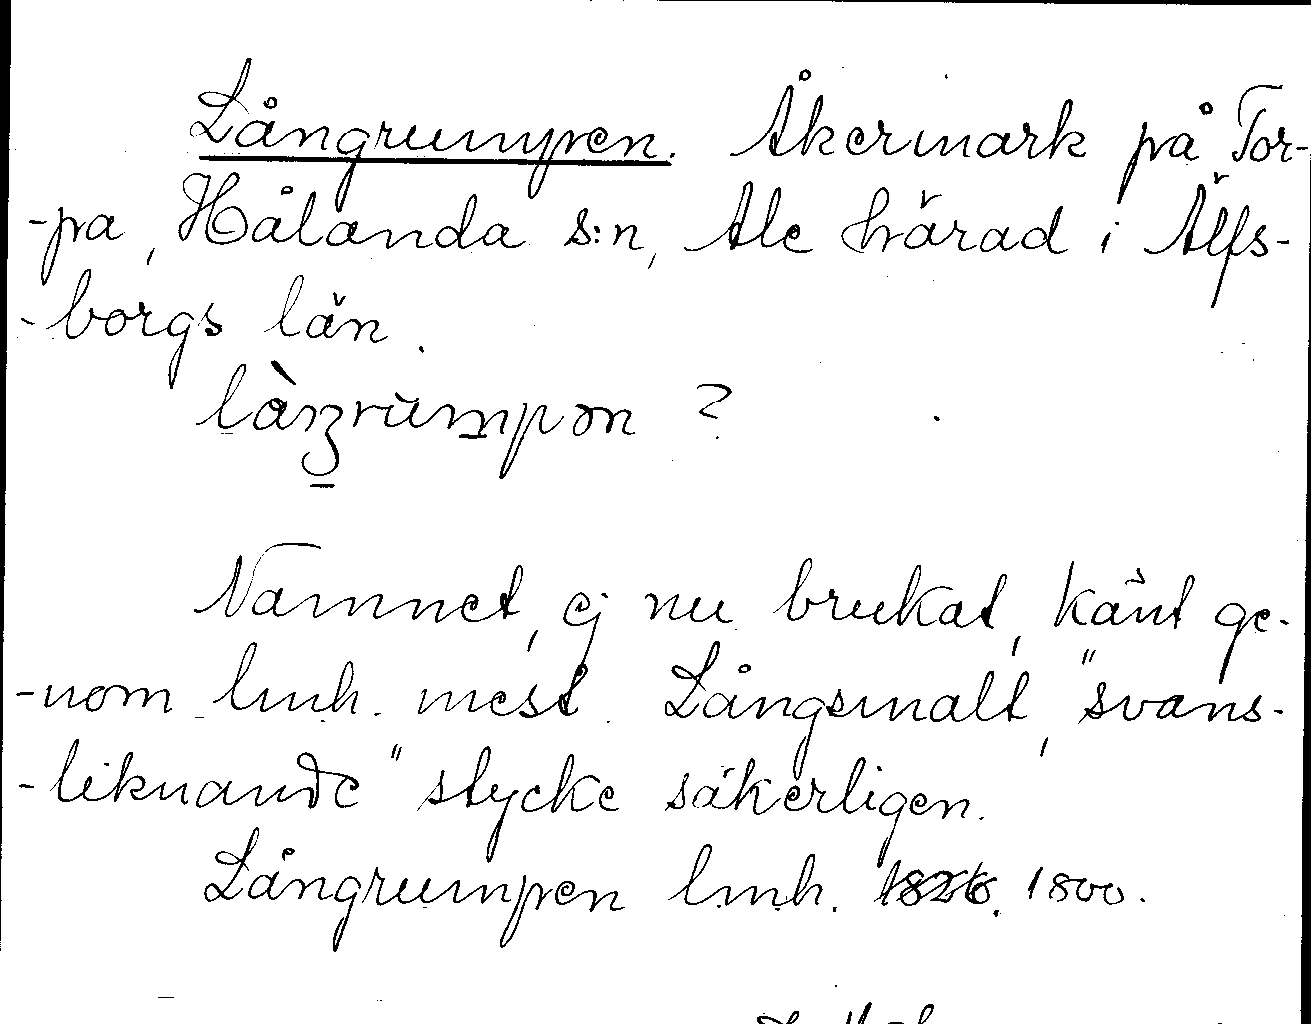 Långrumpen. Åkermark på Tor-
-pa, Hålanda s:n, Ale härad i Älfs-
-borgs län.
làŋrùmpən ?
Namnet, ej nu brukat, känt ge-
-nom lmh. mest. Långsmalt, "svans-
-liknande" stycke säkerligen.
Långrumpen lmh. 1826. 1800.